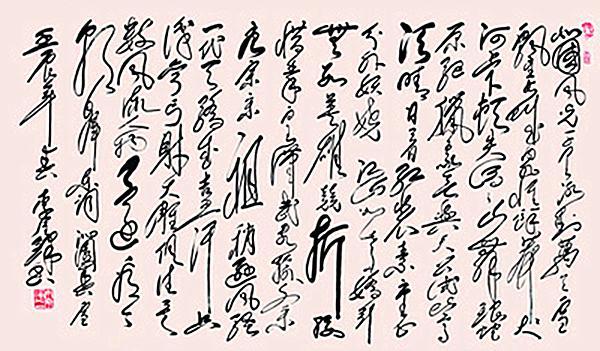 北國风光千里冰封萬里雪
飘望长城内外惟余莽莽大
河上下顿失滔滔山舞银蛇
原驰蜡象欲與天公试比高
须晴日看红装素裹
分外妖娆江山如此多娇引
無数英雄競折腰
惜秦皇漢武略输文采
唐宗宋祖稍逊风骚
一代天骄成吉思汗只
识弯弓射大雕俱往矣
数风流人物还看今
朝 沁園春雪
年春 书